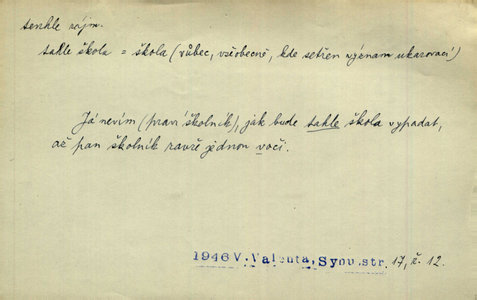 tenhle zájm.
takle škola = škola (vůbec, všeobecně, kde setřen význam ukazovací)
Já nevím (praví školník), jak bude takle škola vypadat,
až pan školník zavře jednou voči.
1946 V. Valenta, Synu. str. 17, ř. 12.